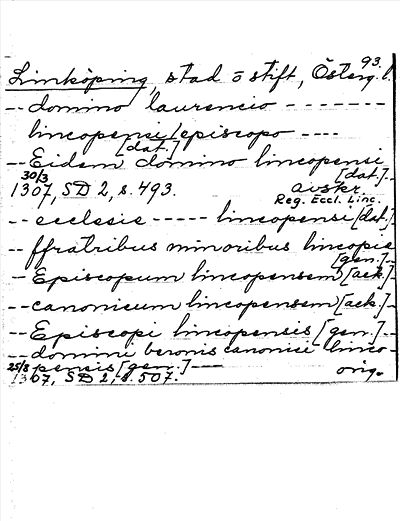 93.
Linköping, stad o stift, Österg. l.
-- domino laurencio -------
lincopensi/episcopo ----
[dat.]
-- Eidem domino lincopensi
30/3 [dat.]--
1307, SD 2, s. 493. avskr.
Reg. Eccl. Linc.
-- ecclesie ----- lincopensi [dat.]
-- ffratribus minoribus lincopie
[gen.]--
-- Episcopum lincopensem [ack.]-
-- canonicum lincopensem [ack.]-
-- Episcopi lincopensis [gen.]--
-- domini beronis canonici linco-
25/8 pensis [gen.] ---
1307, SD 2, s. 507. orig.